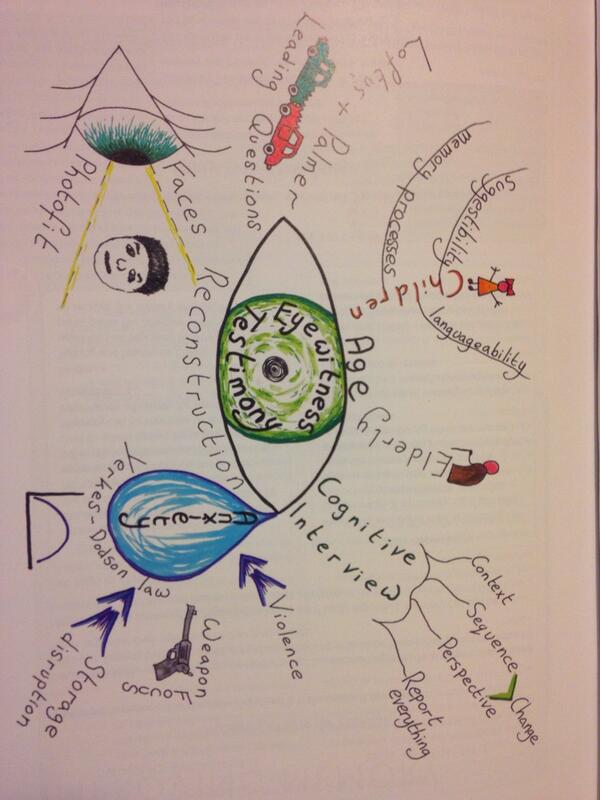 Eyewitness
Testimony
Age
Children
memory processes
suggestibility
languageability
Elderly
Cognitive
Interview
Context
Sequence
Perspective
Change
Report
everything
Anxiety
Yerkes-Dodson law
Violence
Weapon
Focus
Storage
disruption
Reconstruction
Faces
Photofit
Leading
Questions
Loftus + Palmer